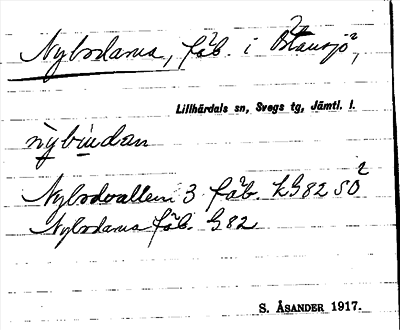 Nybodarna, fäb. i Östansjö,
Lillhärdals sn, Svegs tg, Jämtl. l.
Nybodvallen 3 fäb. kG82 SO
Nybodarna fäb. G82
S. ÅSANDER 1917.